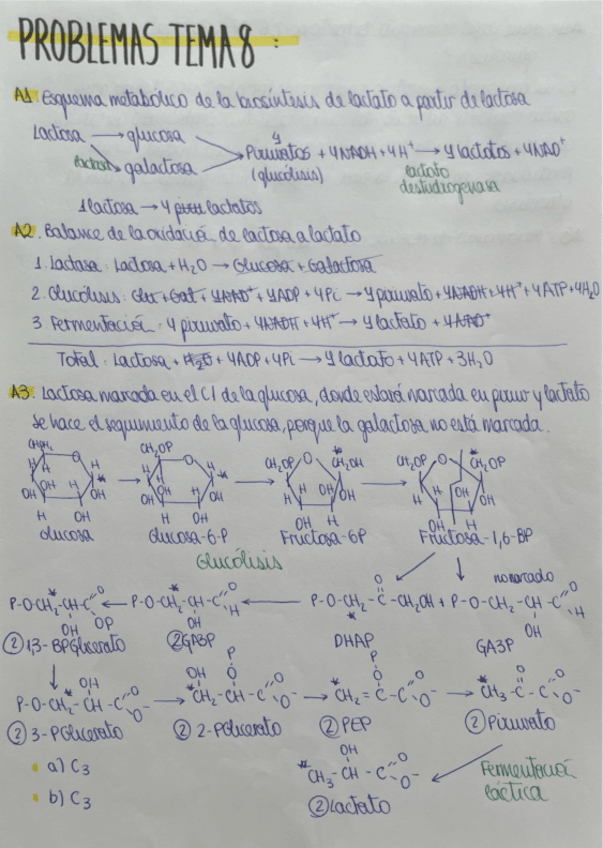 PROBLEMAS TEMA 8:
A1. Esquema metabólico de la biosíntesis de lactato a partir de lactosa
Lactosa → glucosa
lactasa
galactosa
4
Piruvatos + 4NADH + 4H⁺ → 4 lactatos + 4NAD⁺
(glucólisis)
lactato
deshidrogenasa
1 lactosa → 4 lactatos
A2. Balance de la oxidación de lactosa a lactato
1. Lactasa: Lactosa + H₂O → Glucosa + Galactosa
2. Glucólisis: Glu + Gal + 4NAD⁺ + 4ADP + 4Pi → 4 piruvato + 4NADH + 4H⁺ + 4ATP + 4H₂O
3 Fermentación: 4 piruvato + 4NADH + 4H⁺ → 4 lactato + 4NAD⁺
Total: Lactosa + H₂O + 4ADP + 4Pi → 4 lactato + 4ATP + 3H₂O
A3. Lactosa marcada en el C1 de la glucosa, donde estará marcada en piruv y lactato
Se hace el seguimiento de la glucosa, porque la galactosa no está marcada.
CH₂OH CH₂OP CH₂OP *CH₂OH CH₂OP *CH₂OP
Glucosa → Glucosa-6-P → Fructosa-6P → Fructosa-1,6-BP
Glucólisis
no marcado
P-O-CH₂*-CH-C=O ← P-O-CH₂*-CH-C=O ← P-O-CH₂*-C-CH₂OH + P-O-CH₂-CH-C=O
OH OP OH H O OH H
② 1,3-BPGlicerato ② GA3P DHAP GA3P
P-O-CH₂*-CH-C=O O⁻ → *CH₂-CH-C=O O⁻ → *CH₂=C-C=O O⁻ → *CH₃-C-C=O O⁻
② 3-PGlicerato ② 2-PGlicerato ② PEP ② Piruvato
a) C₃
b) C₃
OH
*CH₃-CH-C=O O⁻
② Lactato
Fermentación
láctica